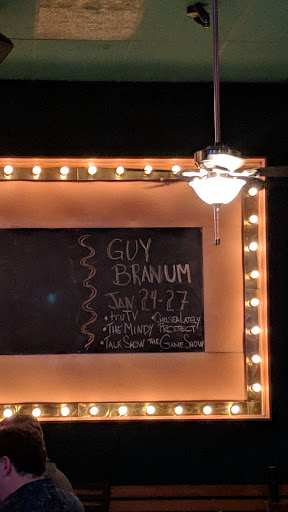 GUY
BRANUM
JAN 24-27
• truTV • CHELSEA LATELY
• THE MINDY PROJECT
• TALK SHOW THE GAME SHOW